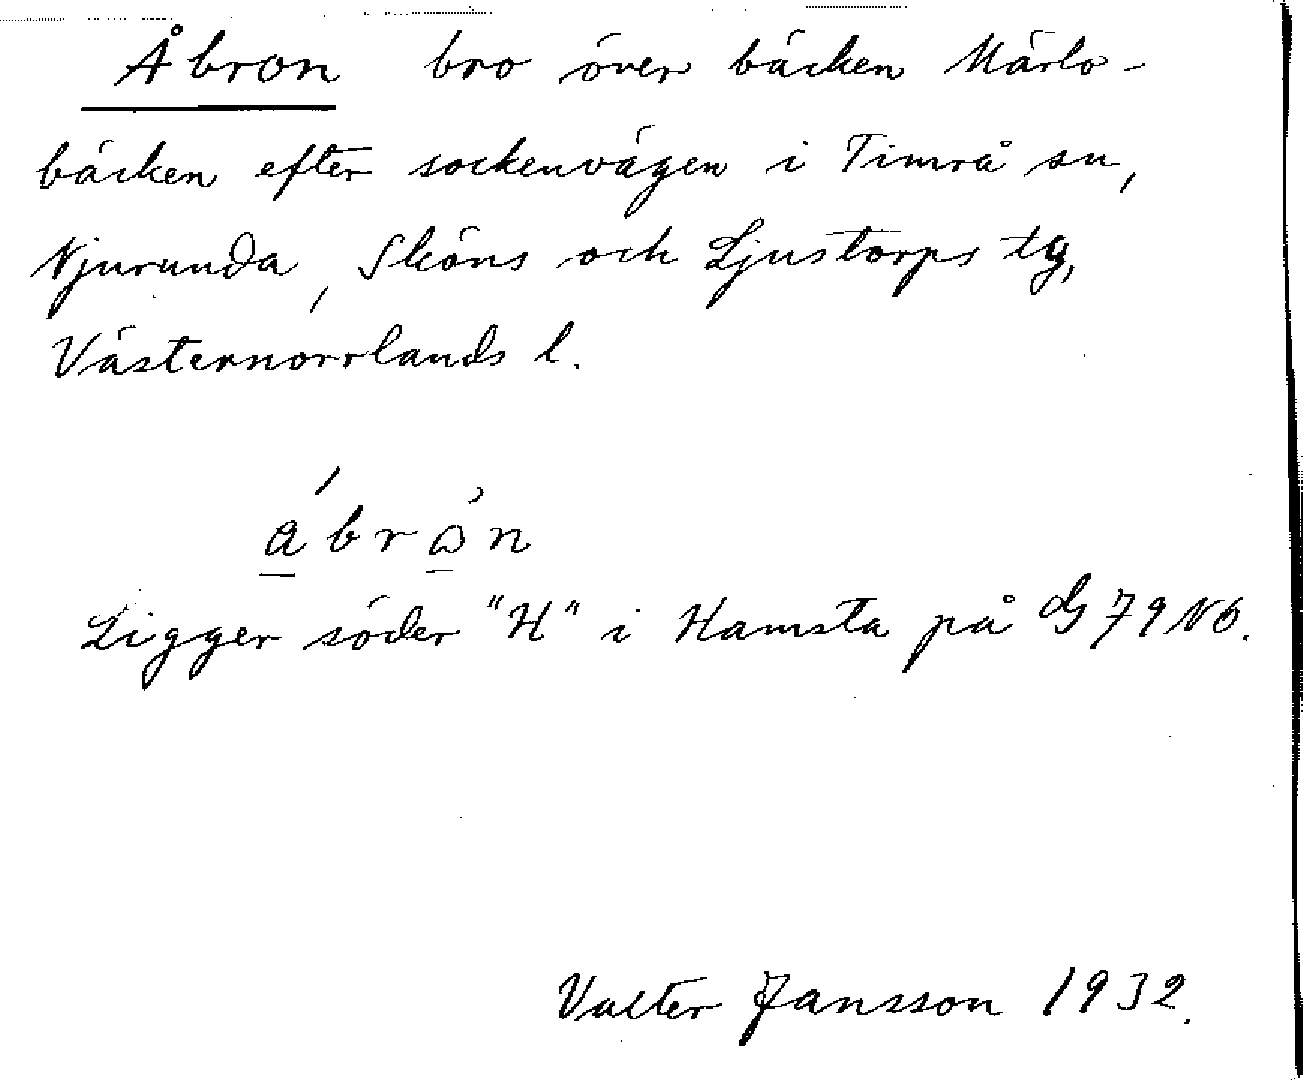 Åbron bro över bäcken Märlo-
bäcken efter sockenvägen i Timrå sn,
Njurunda, Sköns och Ljustorps tg,
Västernorrlands l.
Ligger söder "H" i Hamsta på 79 NO.
Valter Jansson 1932.